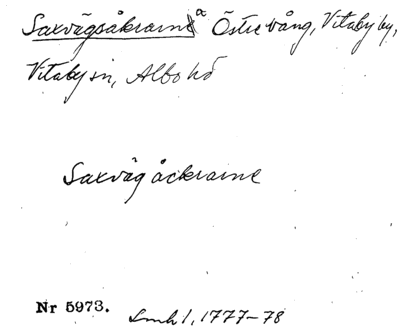 Saxvägsåkrarna Östre vång, Vitaby by,
Vitaby sn, Albo hd
Saxväg åckrarne
Nr 5973.
Lmh 1, 1777-78